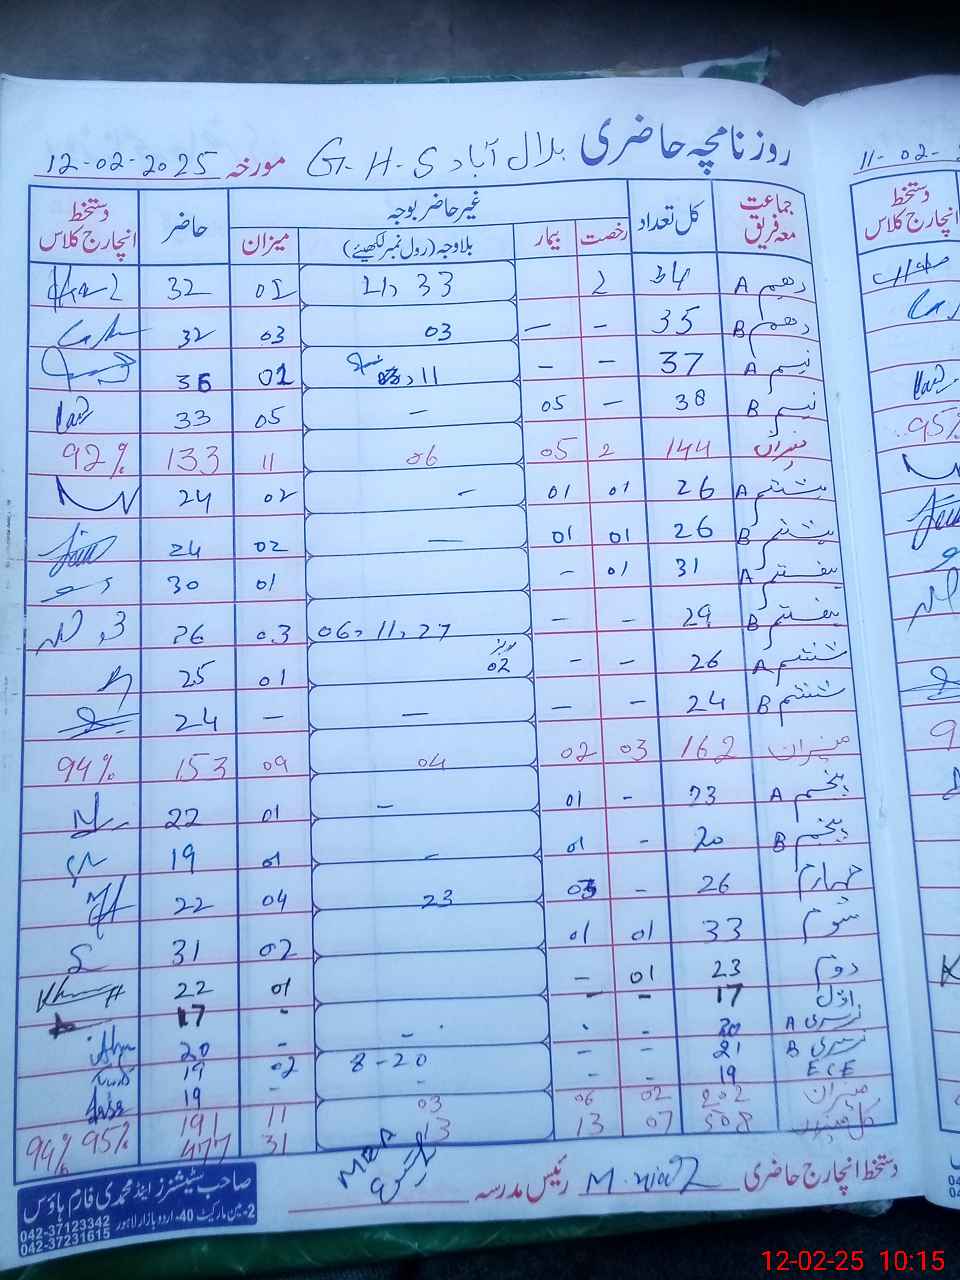 روزنامچہ حاضری G.H.S بلال آباد مورخہ 12-02-2025
جماعت معہ فریق کل تعداد غیر حاضر بوجہ حاضر دستخط انچارج کلاس
رخصت بیمار بلاوجہ (رول نمبر لکھیئے) میزان
دھم A 34 2 21, 33 32
دھم B 35 - - 03 03 32
نہم A 37 - - 11 02 35
نہم B 38 - 05 - 05 33
میزان 144 2 05 06 11 133 92%
ہشتم A 26 01 01 - 02 24
ہشتم B 26 01 01 - 02 24
ہفتم A 31 01 - 01 30
ہفتم B 29 - - 06, 11, 27 03 26
ششم A 26 - - 02 01 25
ششم B 24 - - - - 24
میزان 162 03 02 04 09 153 94%
پنجم A 23 - 01 - 01 22
پنجم B 20 - 01 - 01 19
چہارم 26 - 03 23 04 22
سوم 33 01 01 02 31
دوم 23 01 - 01 22
اول 17 - - - 17
نرسری A 20 - - - 20
نرسری B 21 - - 8-20 02 19
ECE 19 - - - - 19
میزان 202 02 06 03 11 191 95%
کل میزان 508 07 13 13 31 477 94%
دستخط انچارج حاضری رئیس مدرسہ
صاحب سٹیشنرز اینڈ محمدی فارم ہاؤس
2-مین مارکیٹ 40-اردو بازار لاہور
042-37123342
042-37231615
11-02-
دستخط
انچارج کلاس
95%
12-02-25 10:15